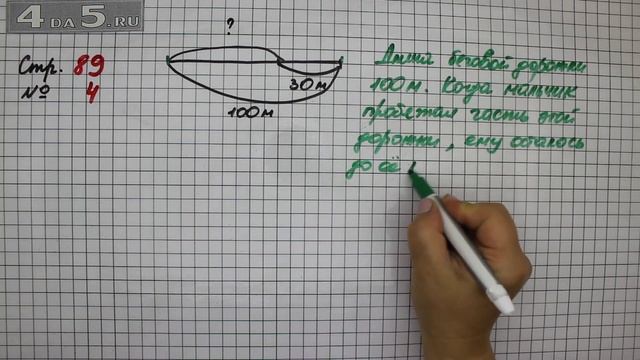 4 DA 5.RU
?
Стр. 89
№ 4
30м
100м
Длина беговой дорожки
100м. Когда мальчик
пробежал часть этой
дорожки, ему осталось
до её